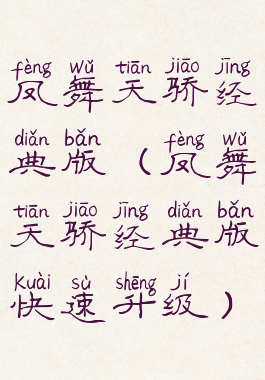 fèng wǔ tiān jiāo jīng
凤舞天骄经
diǎn bǎn fèng wǔ
典版（凤舞
tiān jiāo jīng diǎn bǎn
天骄经典版
kuài sù shēng jí
快速升级）